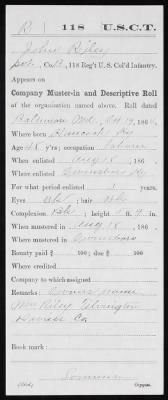 R | 118 | U.S.C.T.
John Riley
Pvt., Co. B, 118 Reg't U.S. Col'd Infantry.
Appears on
Company Muster-in and Descriptive Roll
of the organization named above. Roll dated
Baltimore Md. Oct 19, 1864.
Where born Ky
Age 18 y'rs; occupation Laborer
When enlisted Aug 18, 186 .
Where enlisted Owensboro Ky
For what period enlisted years.
Eyes blk; hair blk
Complexion blk; height 5 ft. 4 in.
When mustered in Aug 18, 186 .
Where mustered in Owensboro
Bounty paid $ 100; due $ 100
Where credited
Company to which assigned
Remarks: Owners name
Wm Riley Yelvington
Daviess Co
Book mark:
Copyist.